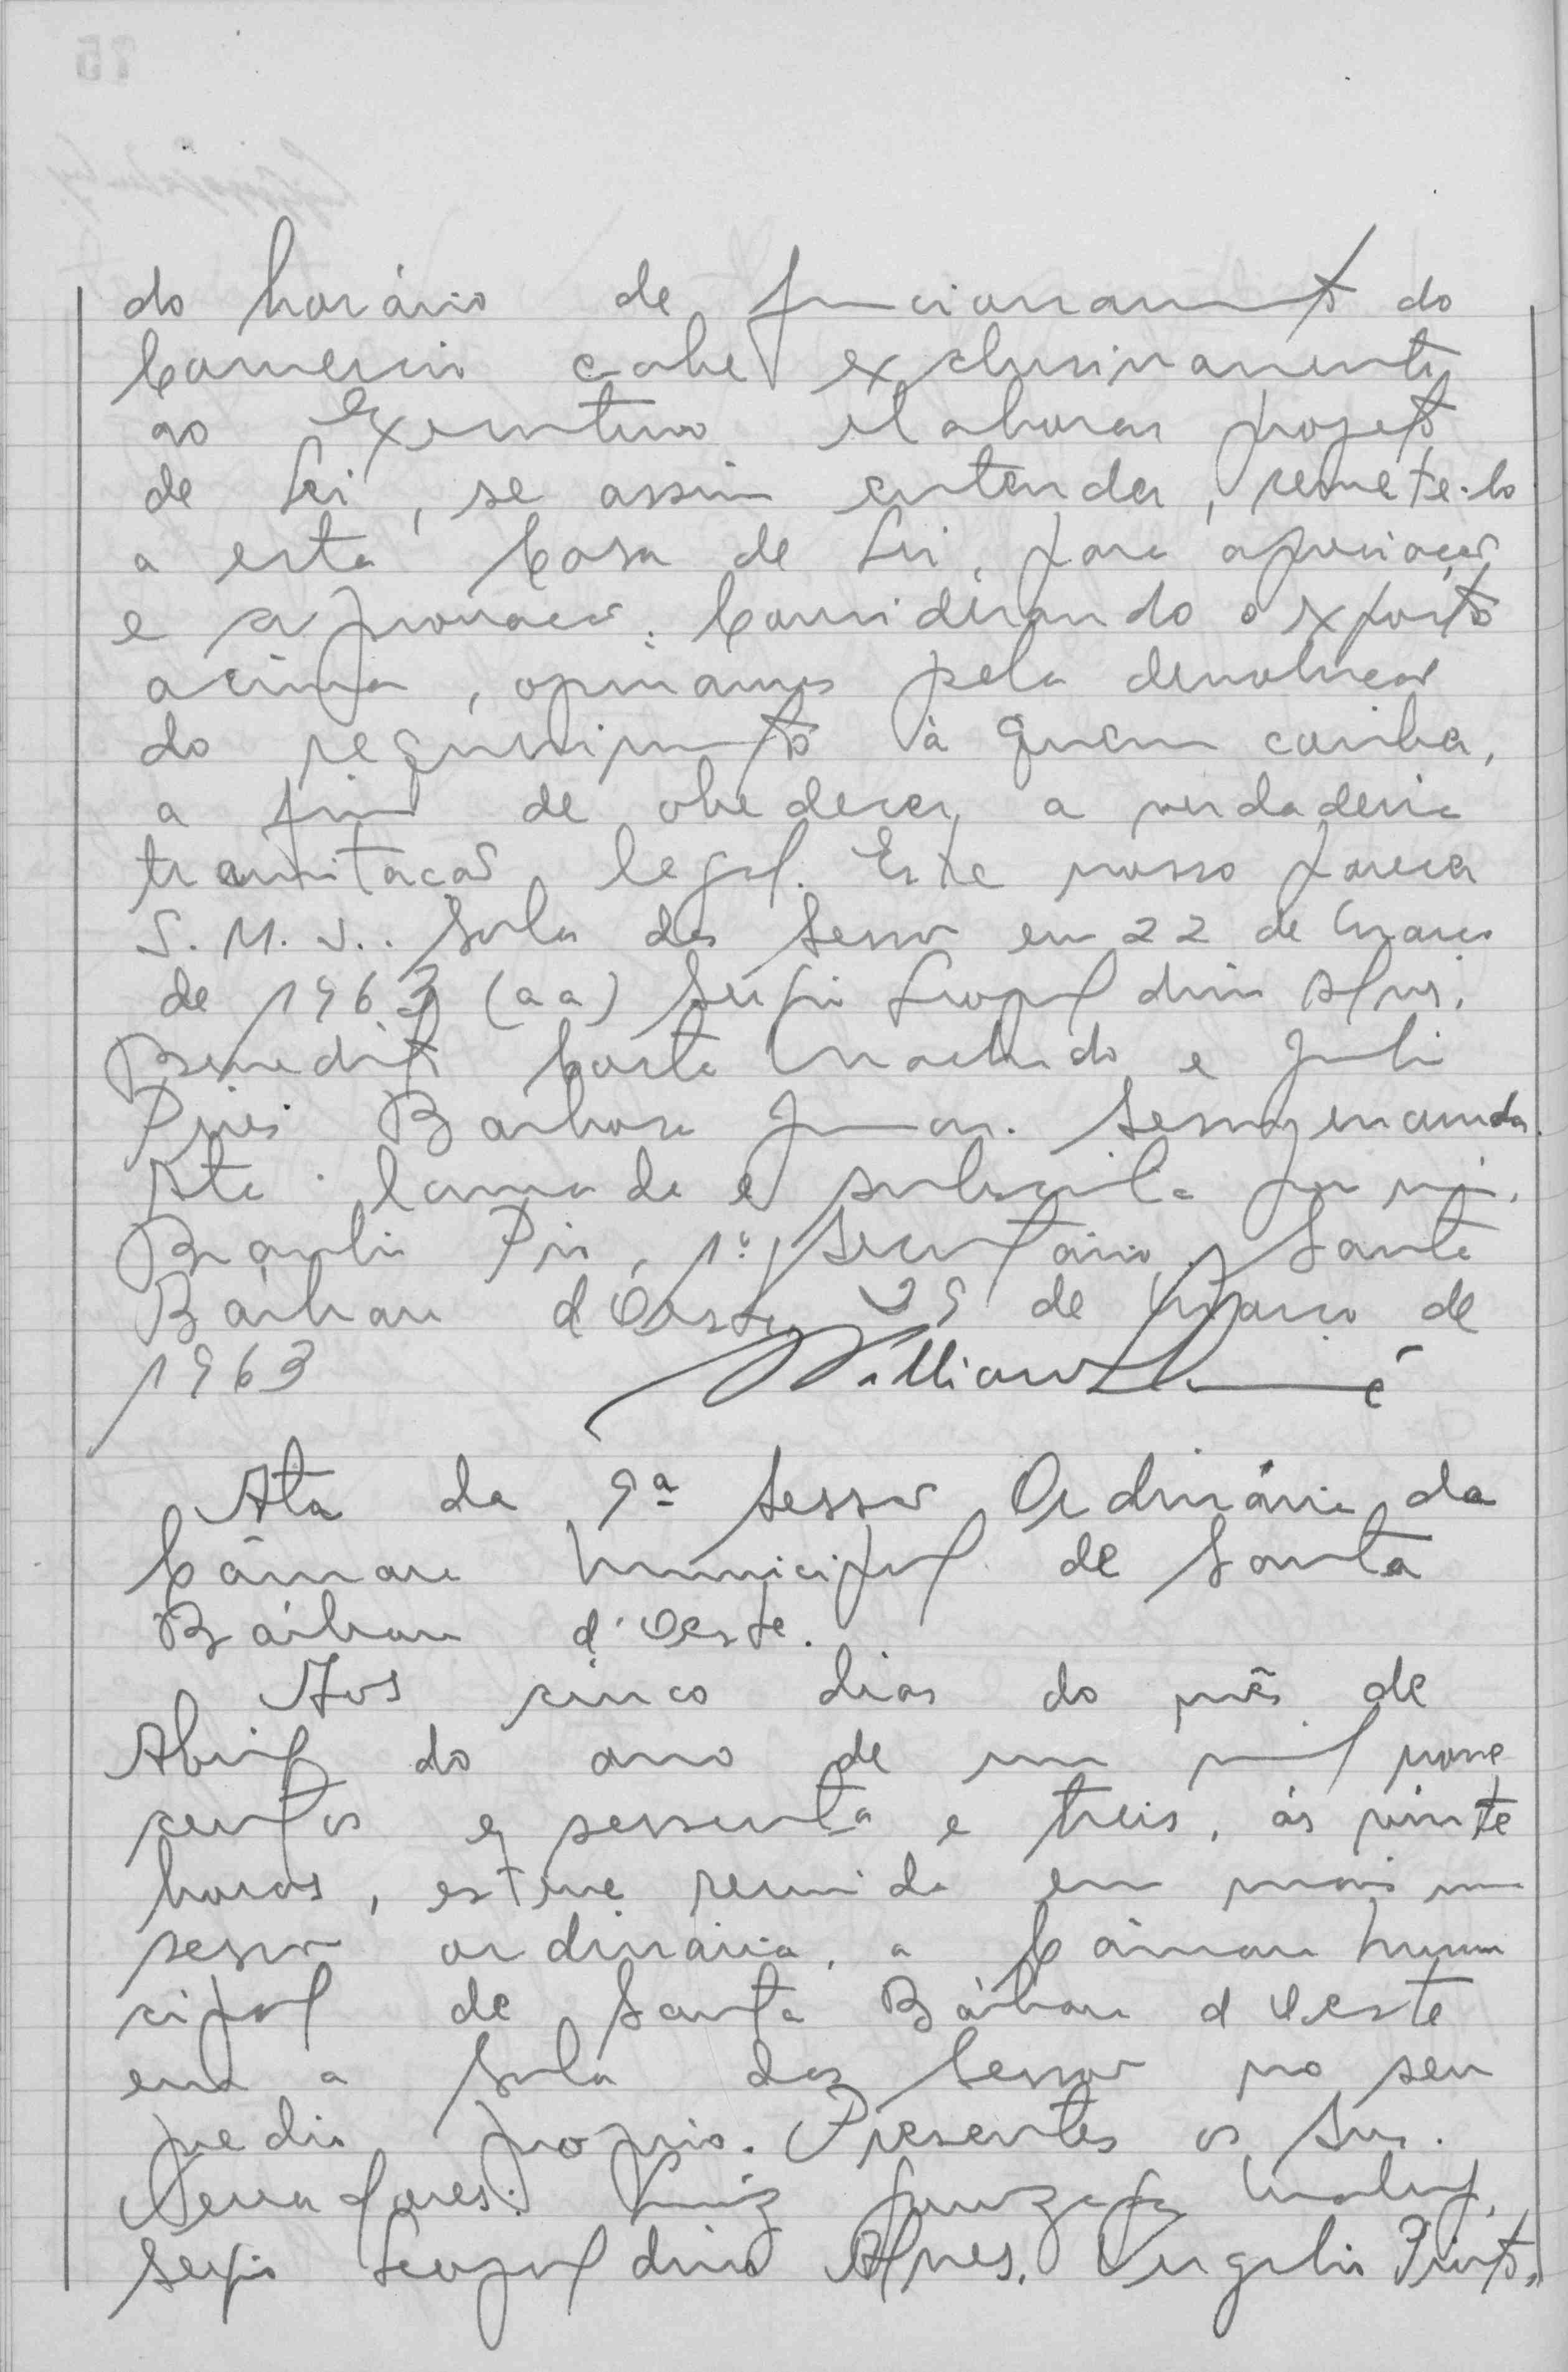 do horário de funcionamento do
Comercio cabe exclusivamente
ao Executivo elaborar projeto
de Lei, se assim entender, remete-lo
a esta Casa de Lei, para apreciação
e aprovação. Considerando o exposto
acima, opinamos pela devolução
do requerimento à quem caiba,
a fim de obedecer a verdadeira
tramitação legal. Este nosso parecer
S.M.J.. Sala das Sessões em 22 de Março
de 1963 (aa) Sergio Leopoldino Alves,
Benedito Costa Machado e Julio
Pires Barbosa Junior. Sem emenda.
Ata lavrada e subscrita por mim,
Braulio Pio, 1º Secretário, Santa
Bárbara d'Oeste, 29 de Março de
1963
Ata da 9ª Sessão Ordinária da
Câmara Municipal de Santa
Bárbara d'Oeste.
Aos cinco dias do mês de
Abril do ano de um mil nove
centos e sessenta e treis, às vinte
horas, esteve reunida em mais uma
sessão ordinária, a Câmara Muni
cipal de Santa Bárbara d'Oeste
em a Sala das Sessões no seu
predio proprio. Presentes os Srs.
Vereadores: Luiz
Sergio Leopoldino Alves, Virgilio Pinto,